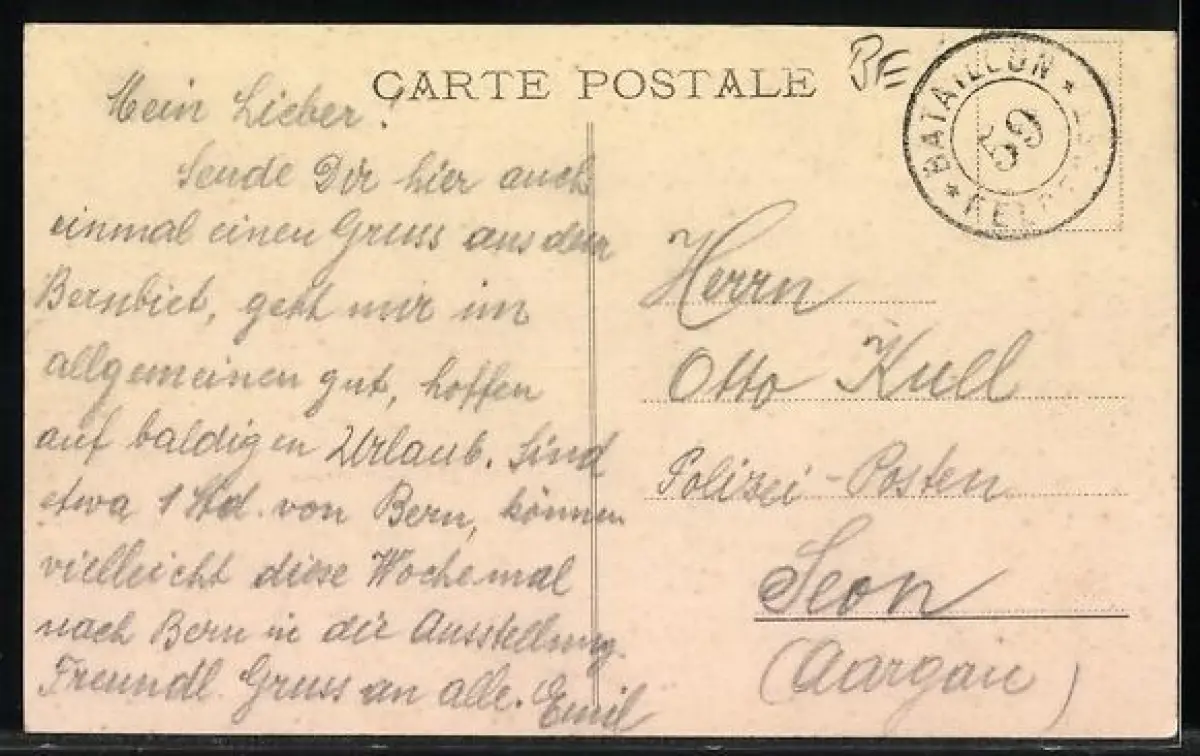 CARTE POSTALE
BE
* BATAILLON *
59
Mein Lieber!
Sende Dir hier auch
einmal einen Gruss aus dem
Bernbiet, geht mir im
allgemeinen gut, hoffen
auf baldigen Urlaub. Sind
etwa 1 Std. von Bern, können
vielleicht diese Woche mal
nach Bern in die Ausstellung.
Freundl. Gruss an alle. Emil
Herrn
Otto Kull
Polizei-Posten
Seon
(Aargau)